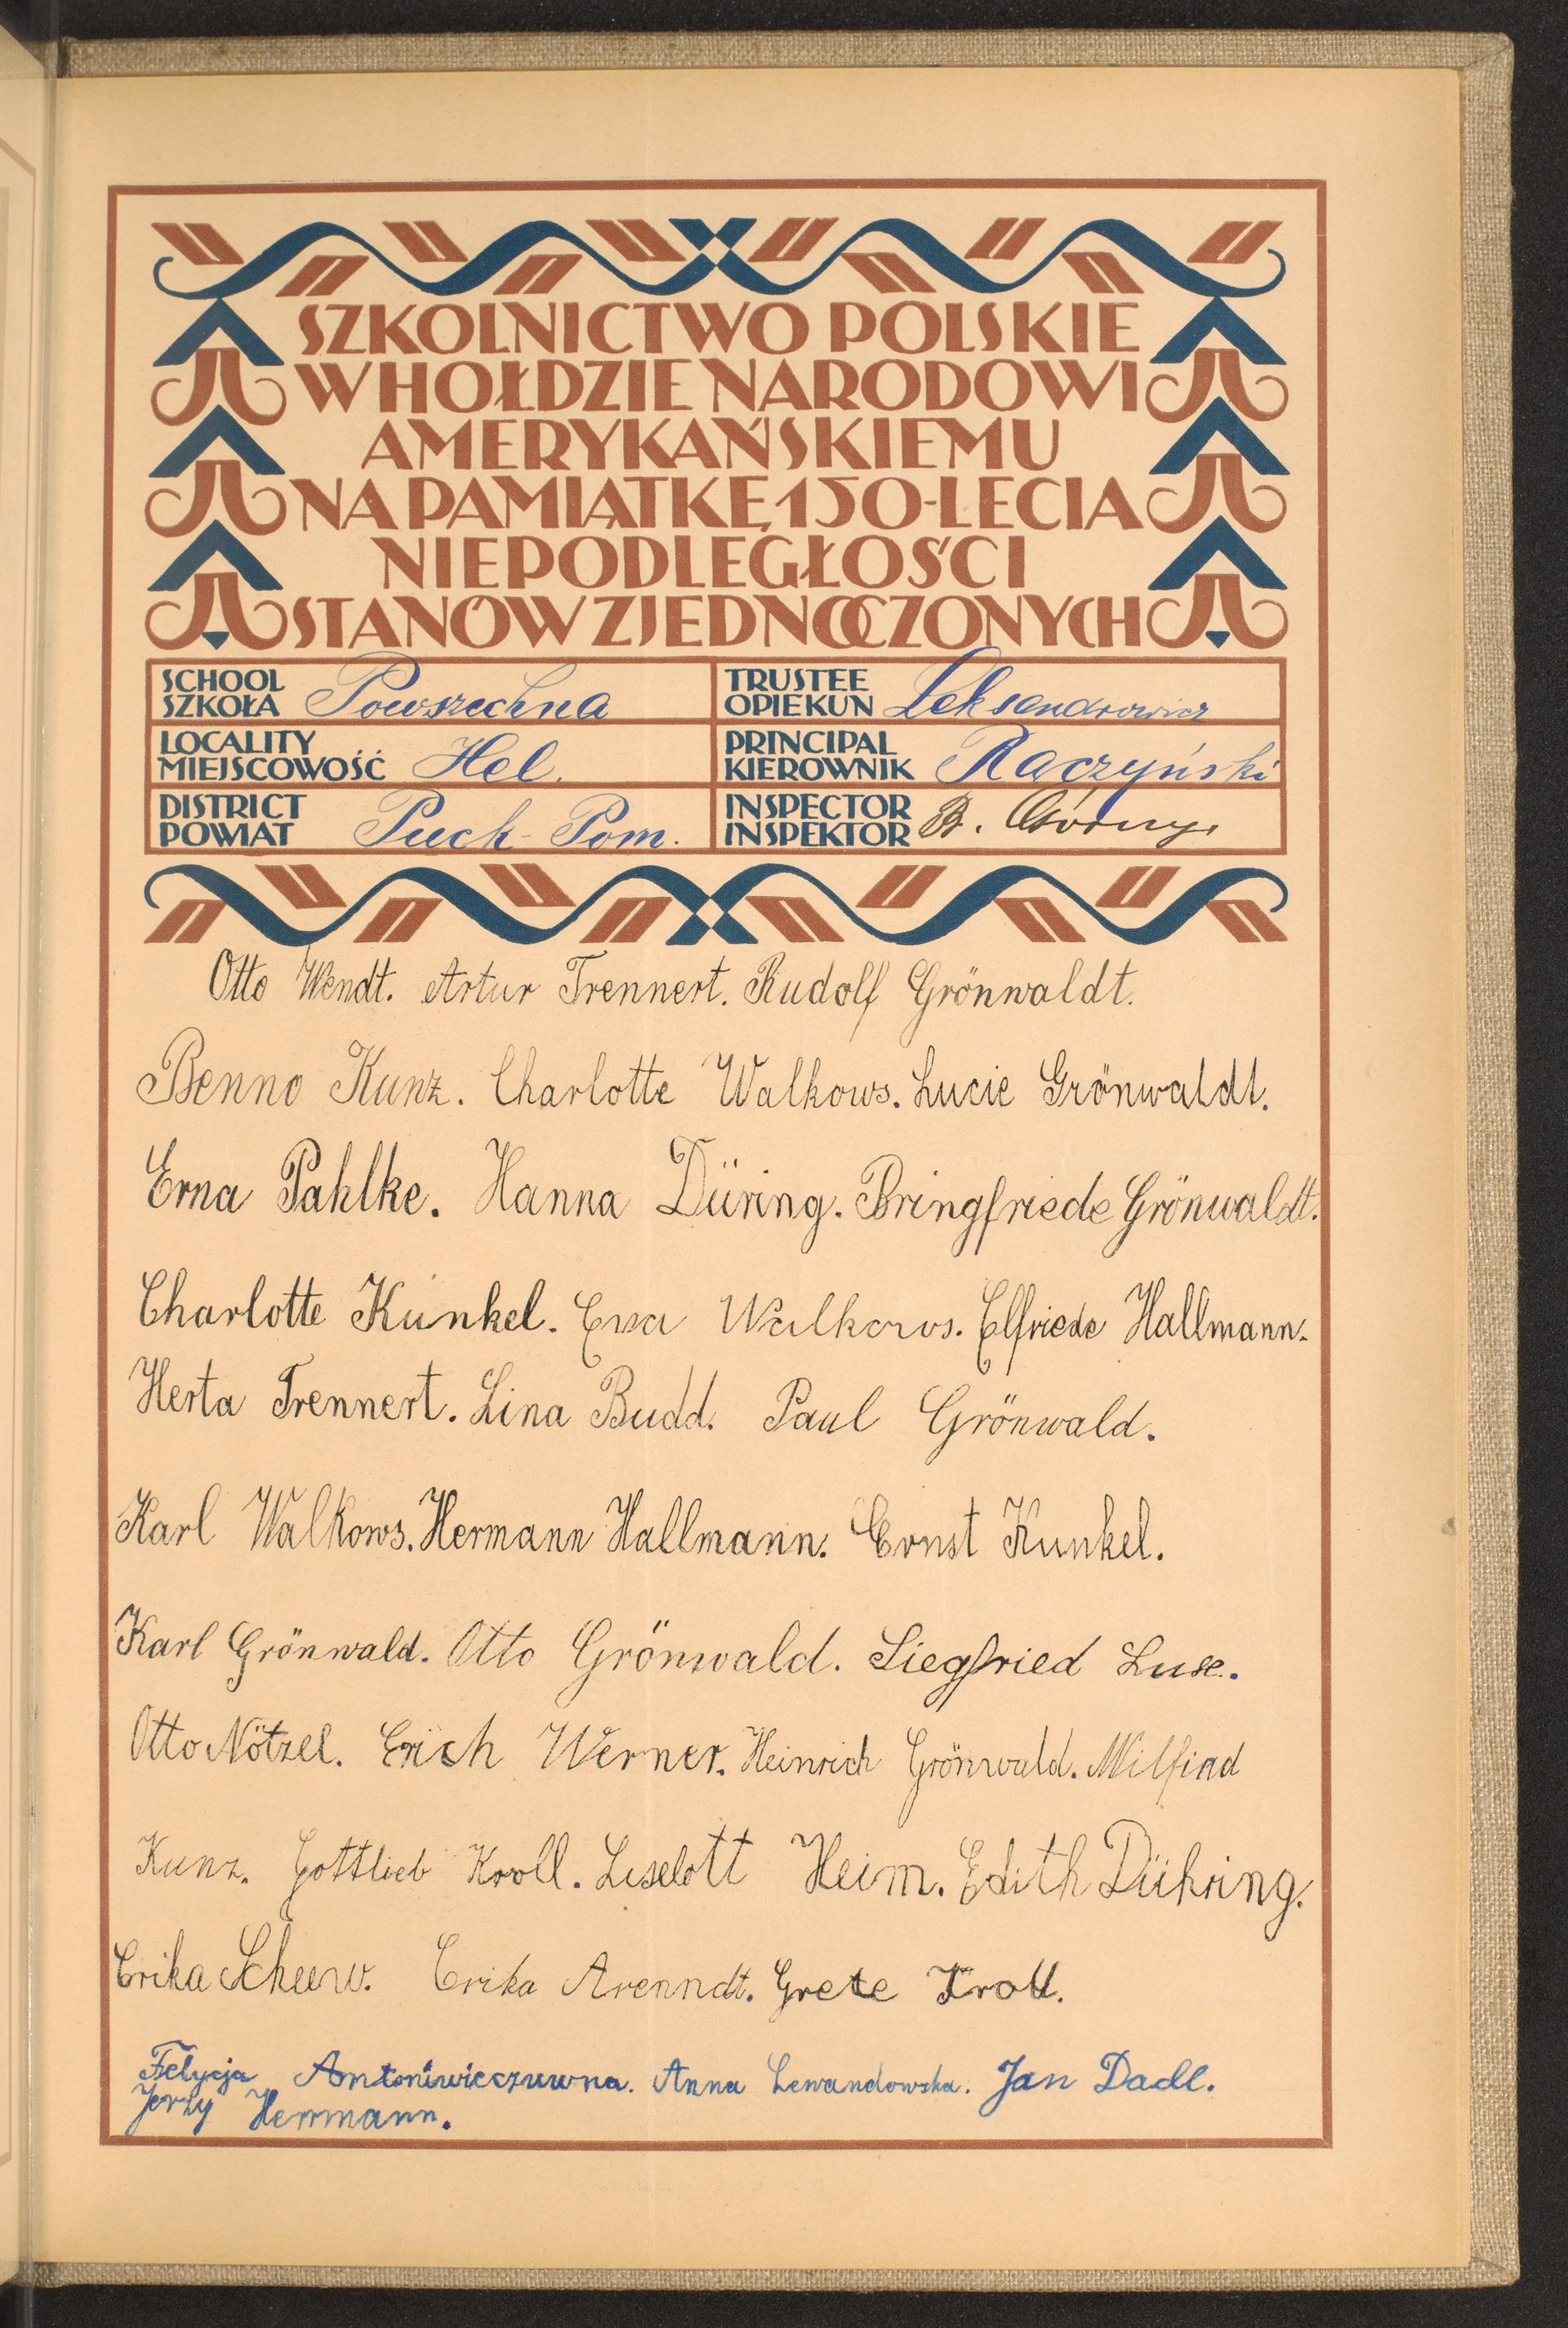 SZKOLNICTWO POLSKIE
W HOŁDZIE NARODOWI
AMERYKAŃSKIEMU
NA PAMIĄTKĘ 150-LECIA
NIEPODLEGŁOŚCI
STANÓW ZJEDNOCZONYCH
SCHOOL
SZKOŁA Powszechna
TRUSTEE
OPIEKUN Leksandrowicz
LOCALITY
MIEJSCOWOŚĆ Hel.
PRINCIPAL
KIEROWNIK Raczyński
DISTRICT
POWIAT Puck - Pom.
INSPECTOR
INSPEKTOR B. Górny
Otto Wendt. Artur Trennert. Rudolf Grönwaldt.
Benno Kunz. Charlotte Walkows. Lucie Grönwaldt.
Erna Pahlke. Hanna Düring. Bringfriede Grönwaldt.
Charlotte Kunkel. Ewa Walkows. Elfriede Hallmann.
Herta Trennert. Lina Budd. Paul Grönwald.
Karl Walkows. Hermann Hallmann. Ernst Kunkel.
Karl Grönwald. Otto Grönwald. Siegfried Luse.
Otto Nötzel. Erich Werner. Heinrich Grönwald.
Kunz. Gottlieb Kroll. Liselott Heim. Edith Dühring.
Erika Erika Arenndt. Grete Kroll.
Felycja Antoniewiczuwna. Anna Lewandowska. Jan Dadl.
Jerzy Herrmann.